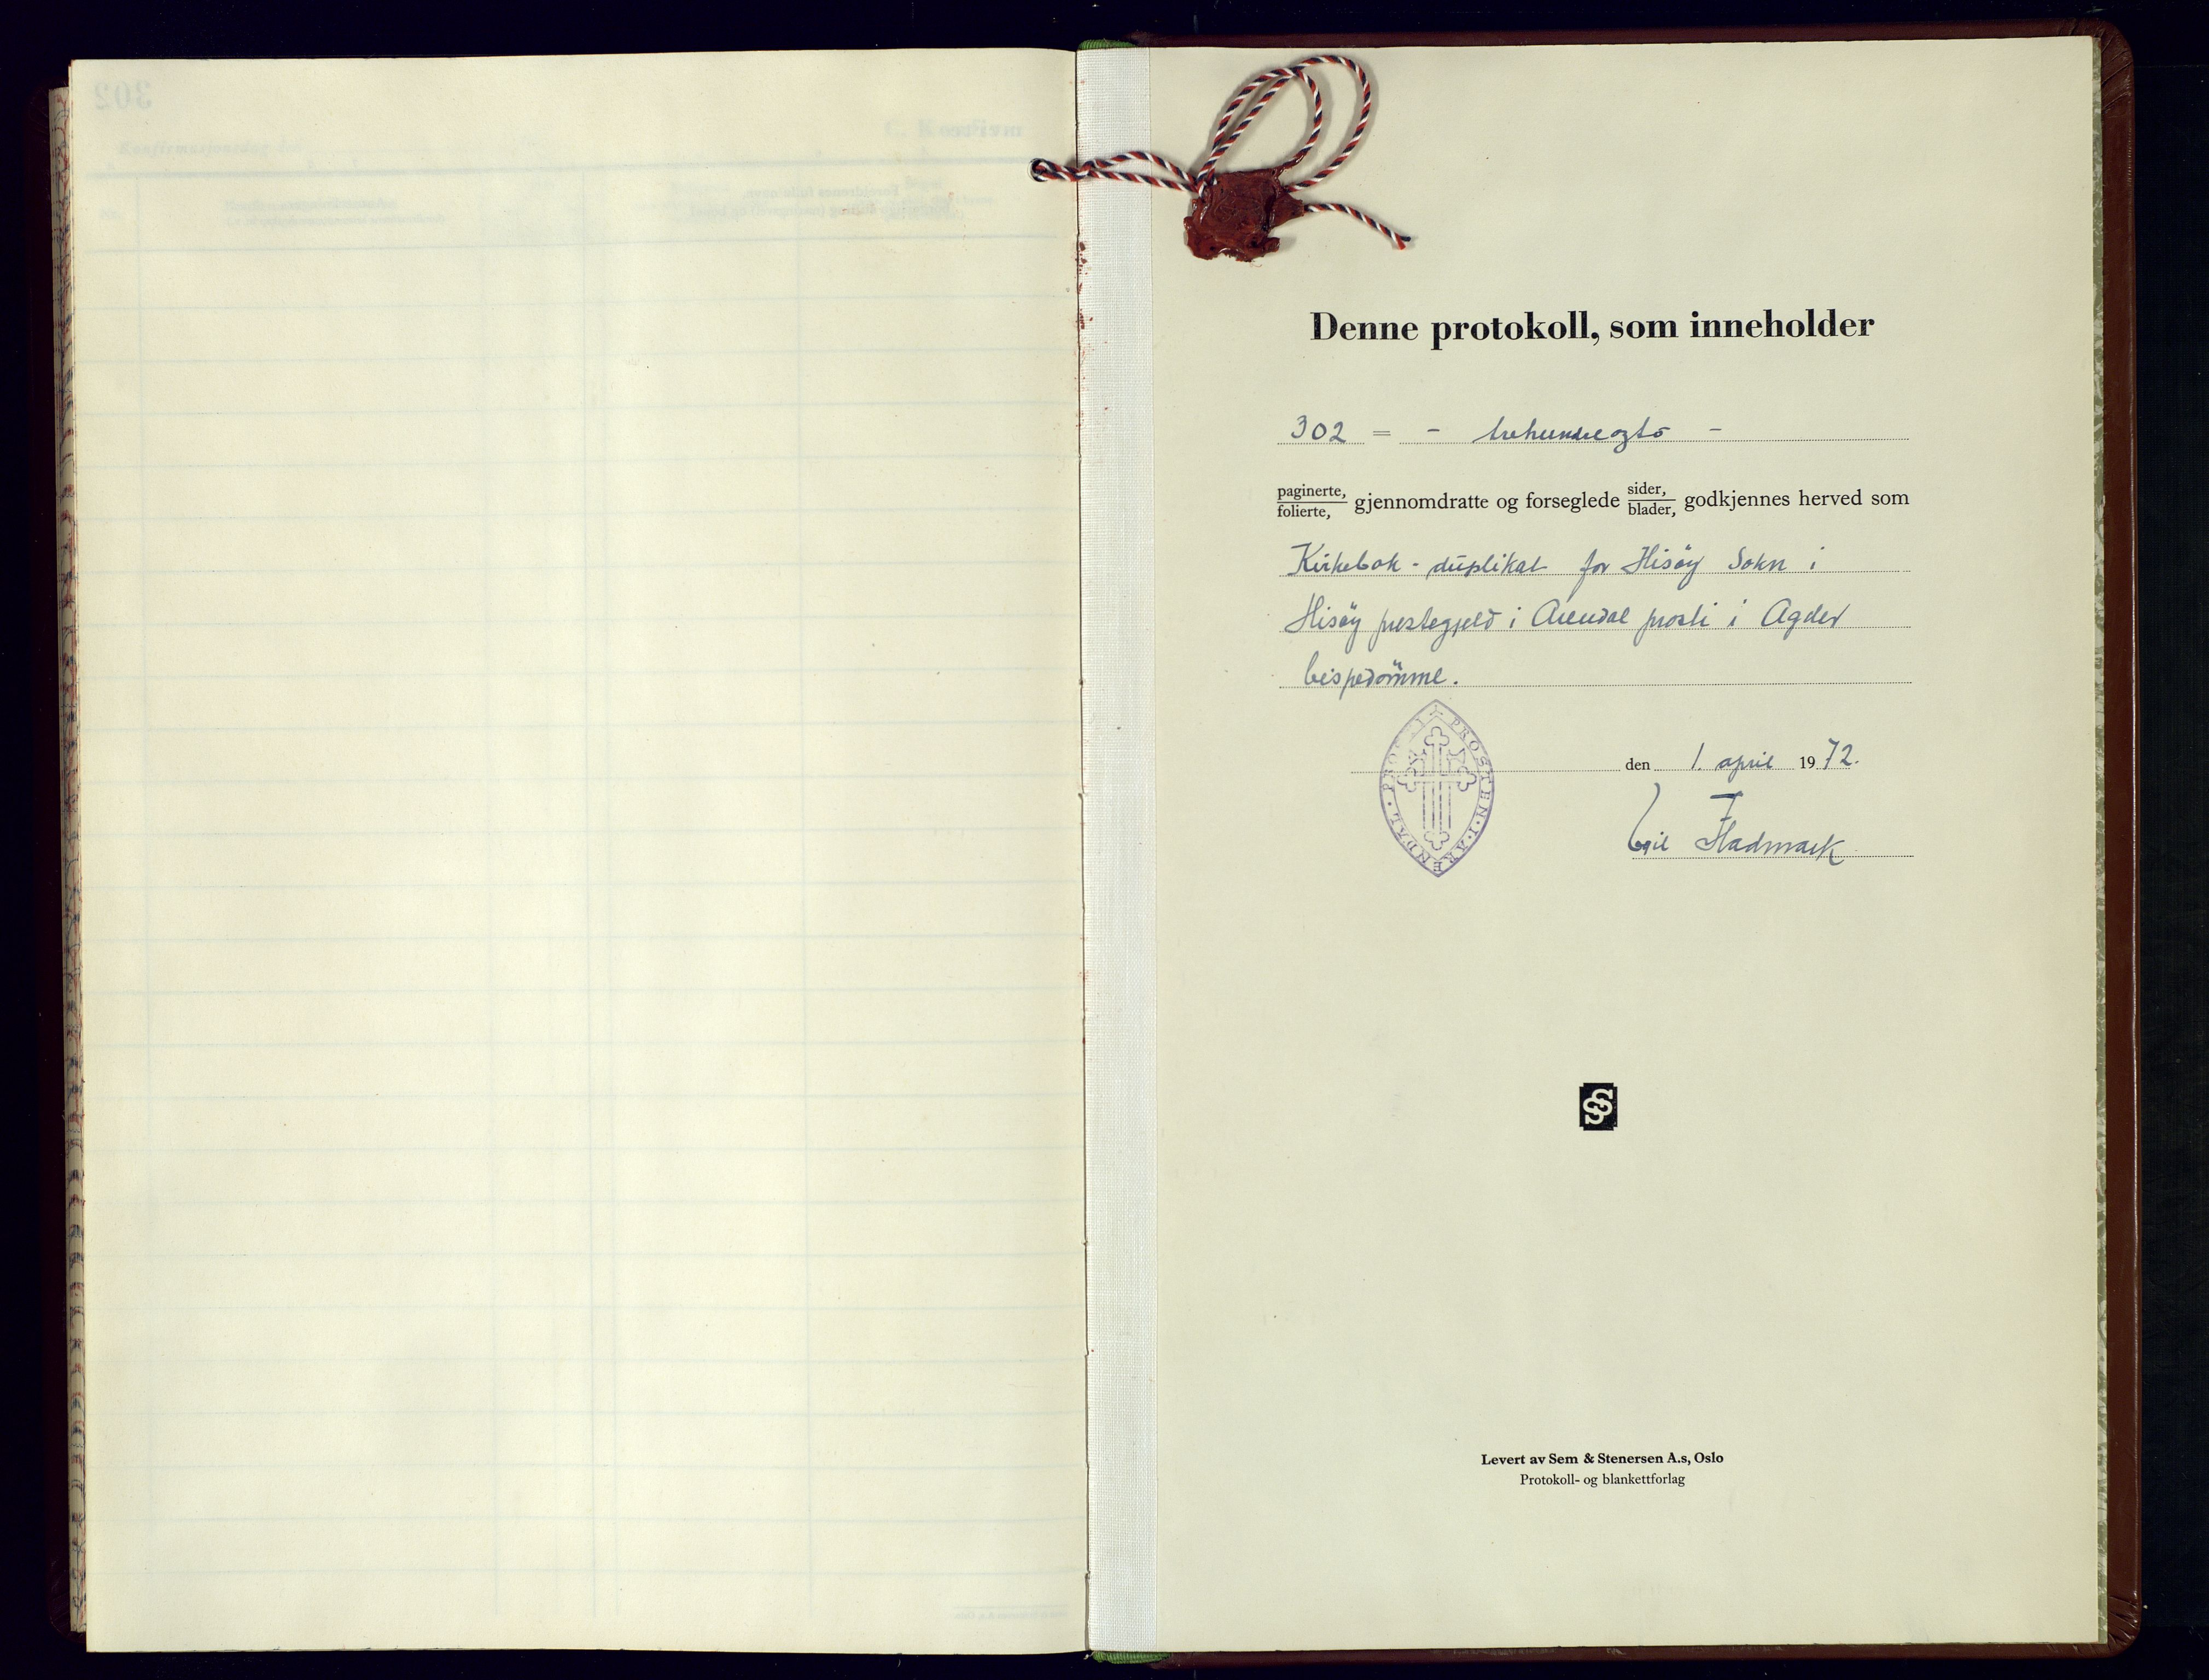 302
Denne protokoll, som inneholder
302 = - trehundreogto -
paginerte, / folierte, gjennomdratte og forseglede sider, / blader, godkjennes herved som
Kirkebok - duplikat for Hisöy Sokn i
Hisöy prestegjeld i Arendal prosti i Agder
bispedömme.
PROSTEN · I · ARENDAL · PROSTI
den 1. april 1972.
Fladmark
SS
Levert av Sem & Stenersen A.s, Oslo
Protokoll- og blankettforlag